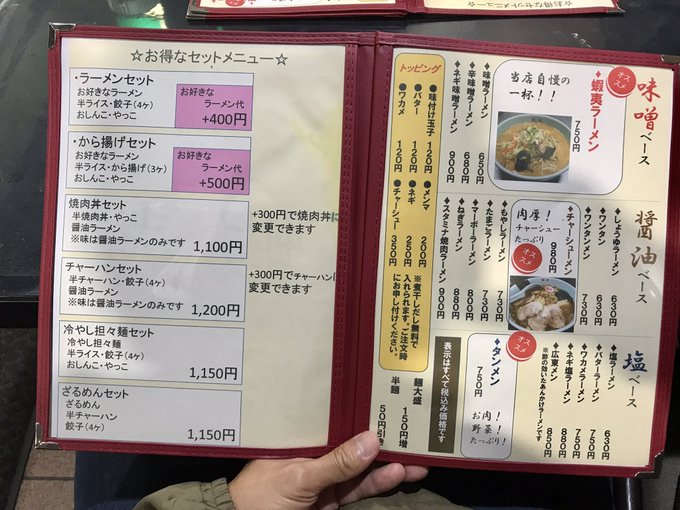 ☆お得なセットメニュー☆
・ラーメンセット
お好きなラーメン
半ライス・餃子(4ヶ)
おしんこ・やっこ
お好きな
ラーメン代
+400円
・から揚げセット
お好きなラーメン
半ライス・から揚げ(3ヶ)
おしんこ・やっこ
お好きな
ラーメン代
+500円
焼肉丼セット
半焼肉丼・やっこ
醤油ラーメン
※味は醤油ラーメンのみです
1,100円
+300円で焼肉丼に
変更できます
チャーハンセット
半チャーハン・餃子(4ヶ)
醤油ラーメン
※味は醤油ラーメンのみです
1,200円
+300円でチャーハンに
変更できます
冷やし担々麺セット
冷やし担々麺
半ライス・餃子(4ヶ)
おしんこ・やっこ
1,150円
ざるめんセット
ざるめん
半チャーハン
餃子(4ヶ)
1,150円
味噌ベース
オススメ
◆蝦夷ラーメン
750円
当店自慢の
一杯!!
◆味噌ラーメン 650円
◆辛味噌ラーメン 680円
◆ネギ味噌ラーメン 900円
醤油ベース
◆しょうゆラーメン 630円
◆ワンタン 630円
◆ワンタンメン 730円
◆チャーシューメン
980円
肉厚!
チャーシュー
たっぷり!
オススメ
◆もやしラーメン 730円
◆たまごラーメン 730円
◆マーボーラーメン 880円
◆ねぎラーメン 880円
◆スタミナ焼肉ラーメン 900円
塩ベース
◆塩ラーメン 630円
◆バターラーメン
◆ワカメラーメン
◆ネギ塩ラーメン 850円
◆広東メン 880円
オススメ
◆タンメン
750円
お肉!
野菜!
たっぷり!
トッピング
●味付け玉子 120円
●バター 120円
●ワカメ 120円
●メンマ 200円
●ネギ 250円
●チャーシュー 350円
※煮干しだし無料で
入れられます。ご注文時
にお申し付けください。
表示はすべて税込み価格です
麺大盛 150円増
半麺 50円引き